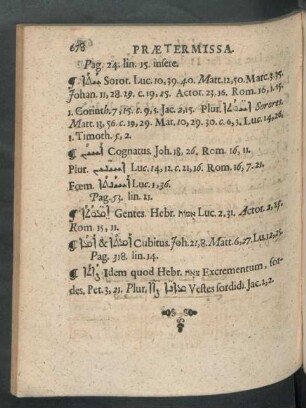 678 PRÆTERMISSA.
Pag. 24. lin. 15. insere.
¶. Soror. Luc. 10, 39. 40. Matt. 12, 50. Marc. 3. 35.
Johan. 11, 28. 29. c. 19, 25. Actor. 23. 16. Rom. 16, 1. 15.
1. Corinth. 7, 15. c. 9, 5. Jac. 2, 15. Plur. Sorores.
Matt. 13, 56. c. 19, 29. Mar. 10, 29. 30. c. 6, 3. Luc. 14, 26,
1. Timoth. 5, 2.
¶ Cognatus. Joh. 18, 26, Rom. 16, 11.
Plur. Luc. 14, 12. c. 21, 16. Rom. 16, 7. 21.
Fœm. Luc. 1, 36.
Pag. 53. lin. 11.
¶ Gentes. Hebr. Luc. 2. 31. Actor. 2, 25,
Rom. 15, 11.
¶ & Cubitus. Joh. 21, 8. Matt. 6, 27. Lu. 12, 25.
Pag. 318. lin. 14.
¶ Idem quod Hebr. Excrementum, sor-
des, Pet. 3, 21. Plur. Vestes sordidi. Jac. 2, 2.